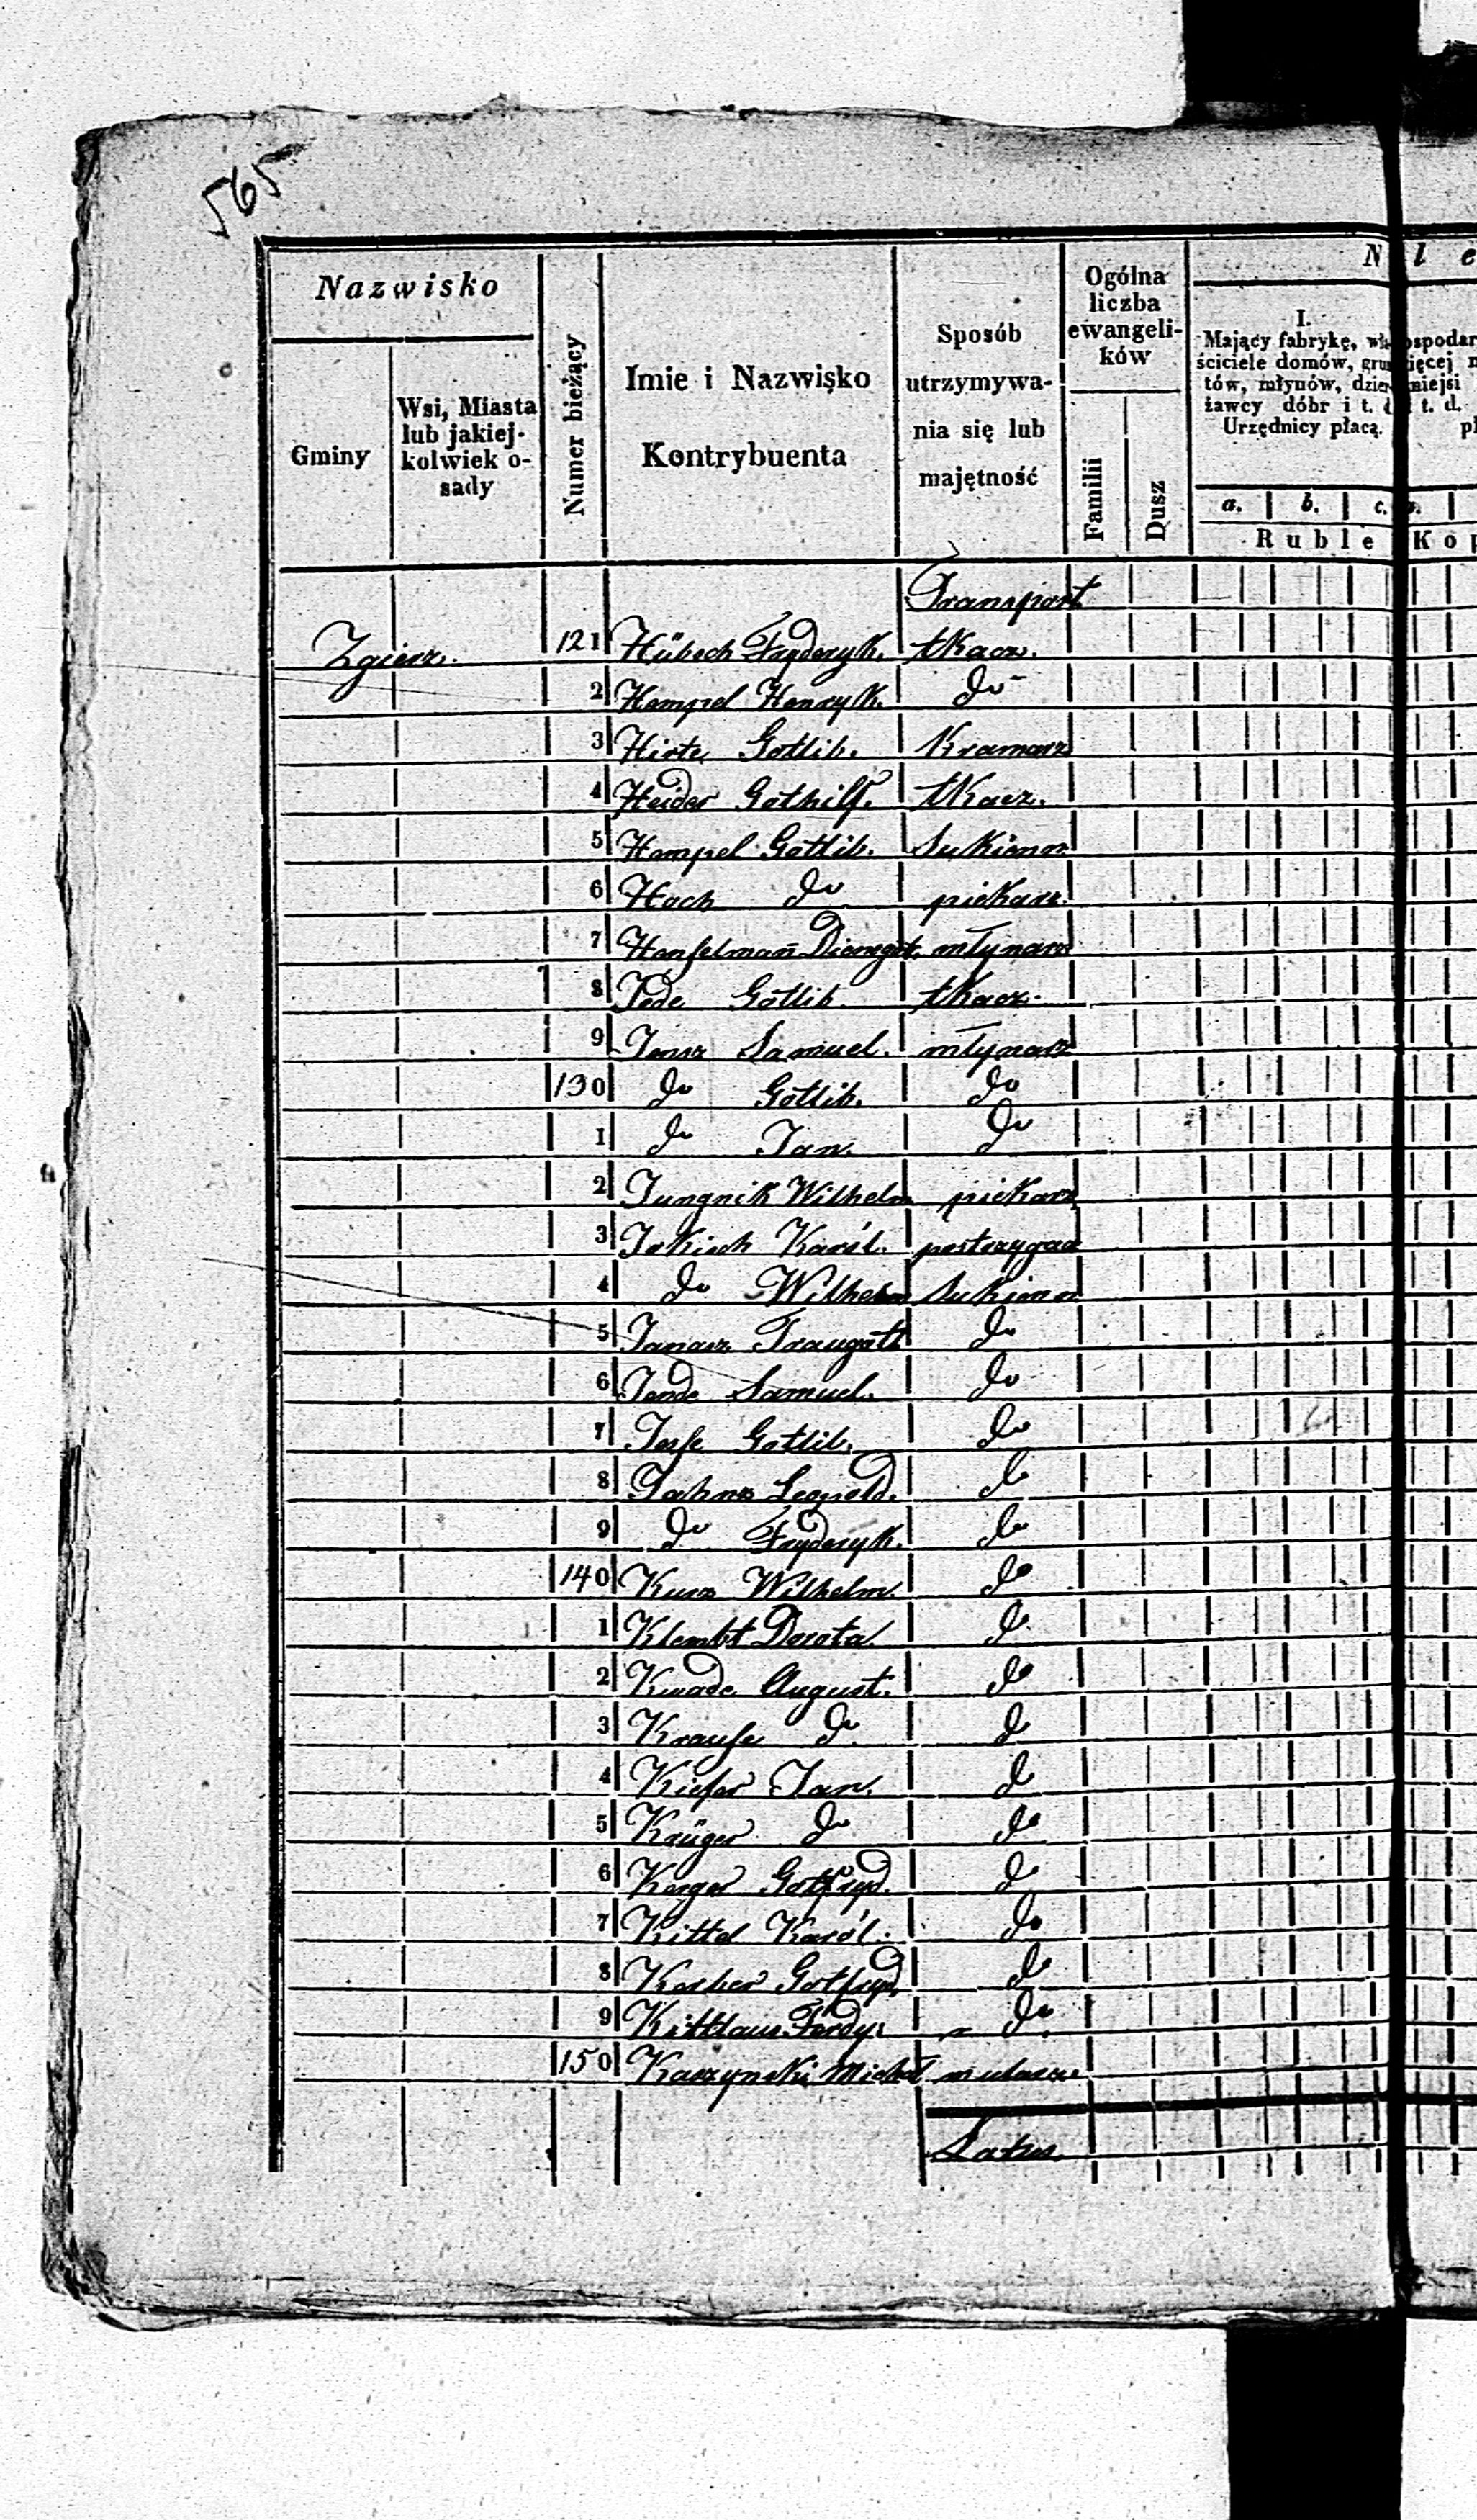 565
Nazwisko
Gminy
Wsi, Miasta
lub jakiej-
kolwiek o-
sady
Numer bieżący
Imie i Nazwisko
Kontrybuenta
Sposób
utrzymywa-
nia się lub
majętność
Ogólna
liczba
ewangeli-
ków
Familii
Dusz
N l e
I.
Mający fabrykę, wła ospodar
ściciele domów, grun ięcej
tów, młynów, dzier mniejsi
żawcy dóbr i t. d. t. d.
Urzędnicy płacą. pł
a. b. c.
Ruble Kop
Transport
Zgierz. 121 Hübsch Fryderyk. tkacz.
2 Hempel Henryk. do
3 Hirte Gottlib. Kramarz
4 Heider Gothilf. tkacz.
5 Hempel Gottlib. Sukienn
6 Hach do piekarz.
7 Henselman̄ młynarz
8 Jede Gottlib. tkacz.
9 Jensz Samuel. młynarz
130 do Gottlib. do
1 do Jan. do
2 Jungnik Wilhelm piekarz
3 Jakisch Karól. postrzygacz
4 do Wilhelm Sukienn
5 Janasz Traugott do
6 Jende Samuel. do
7 Jesse Gottlib. do
8 Jahnz Leopold. do
9 do Fryderyk. do
140 Kurz Wilhelm. do
1 Klembt Dorota do
2 Kwade August. do
3 Krause do. do
4 Kiefer Jan. do
5 Krüger do do
6 Karger Gottfryd. do
7 Kittel Karól. do
8 Karher Gotfryd do
9 Kittlaus Ferdy: do.
150 Kaczynski Michał mularz
Latus